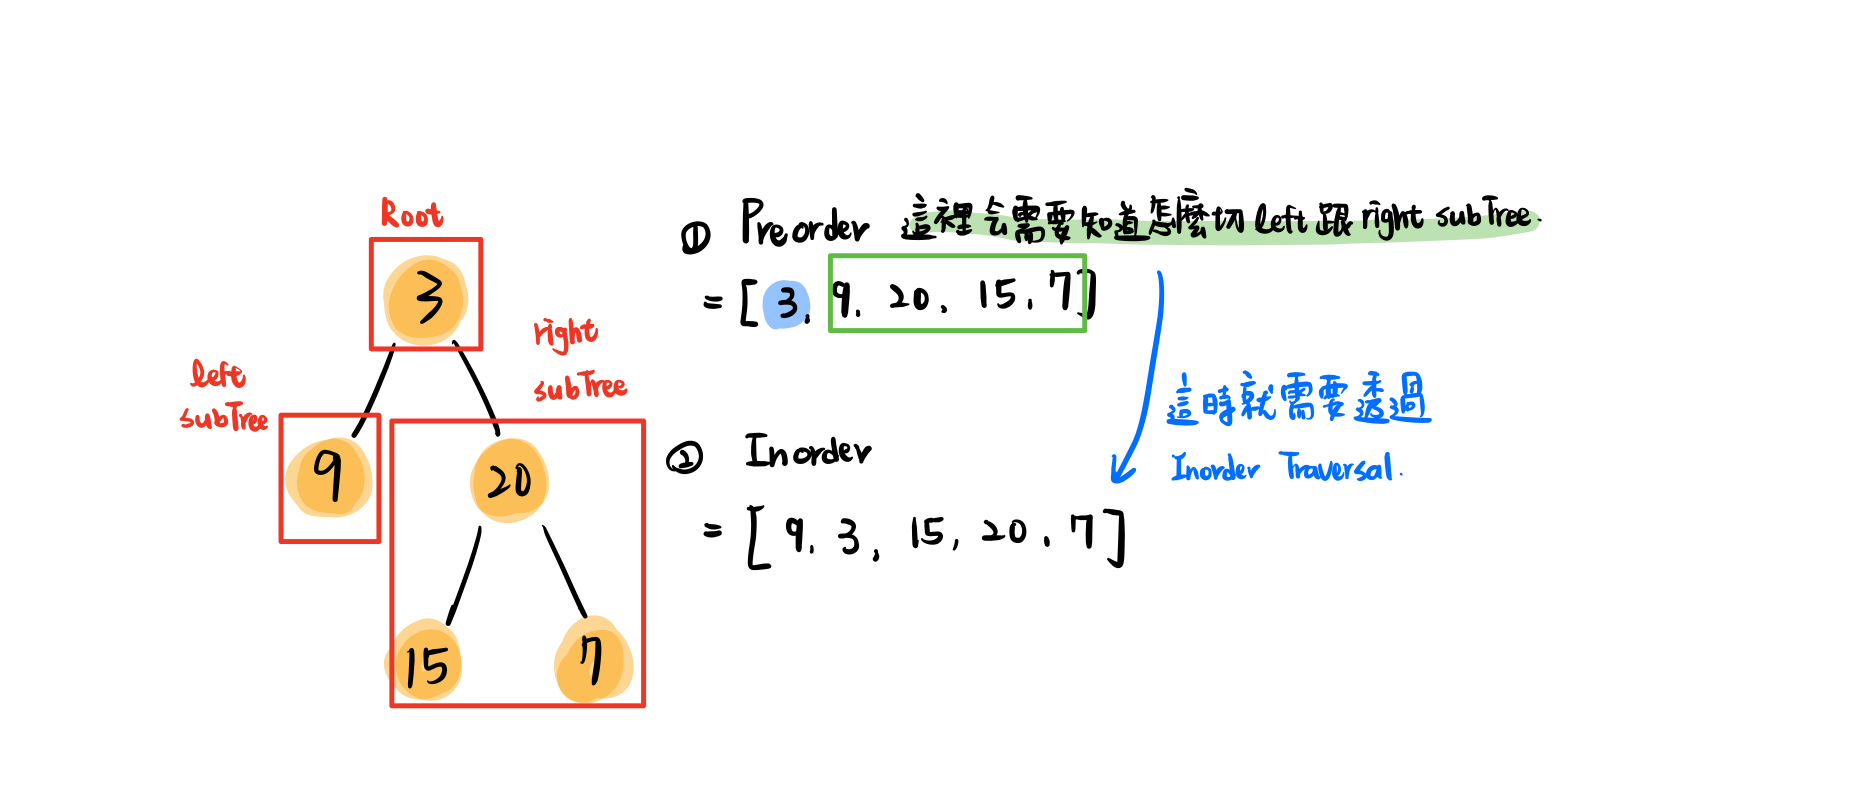 Root
3
left
subTree
right
subTree
9
20
15
7
① Preorder 這裡会需要知道怎麼切 left 跟 right subTree.
= [ 3, 9, 20, 15, 7 ]
這時就需要透過
Inorder Traversal.
② Inorder
= [ 9, 3, 15, 20, 7 ]